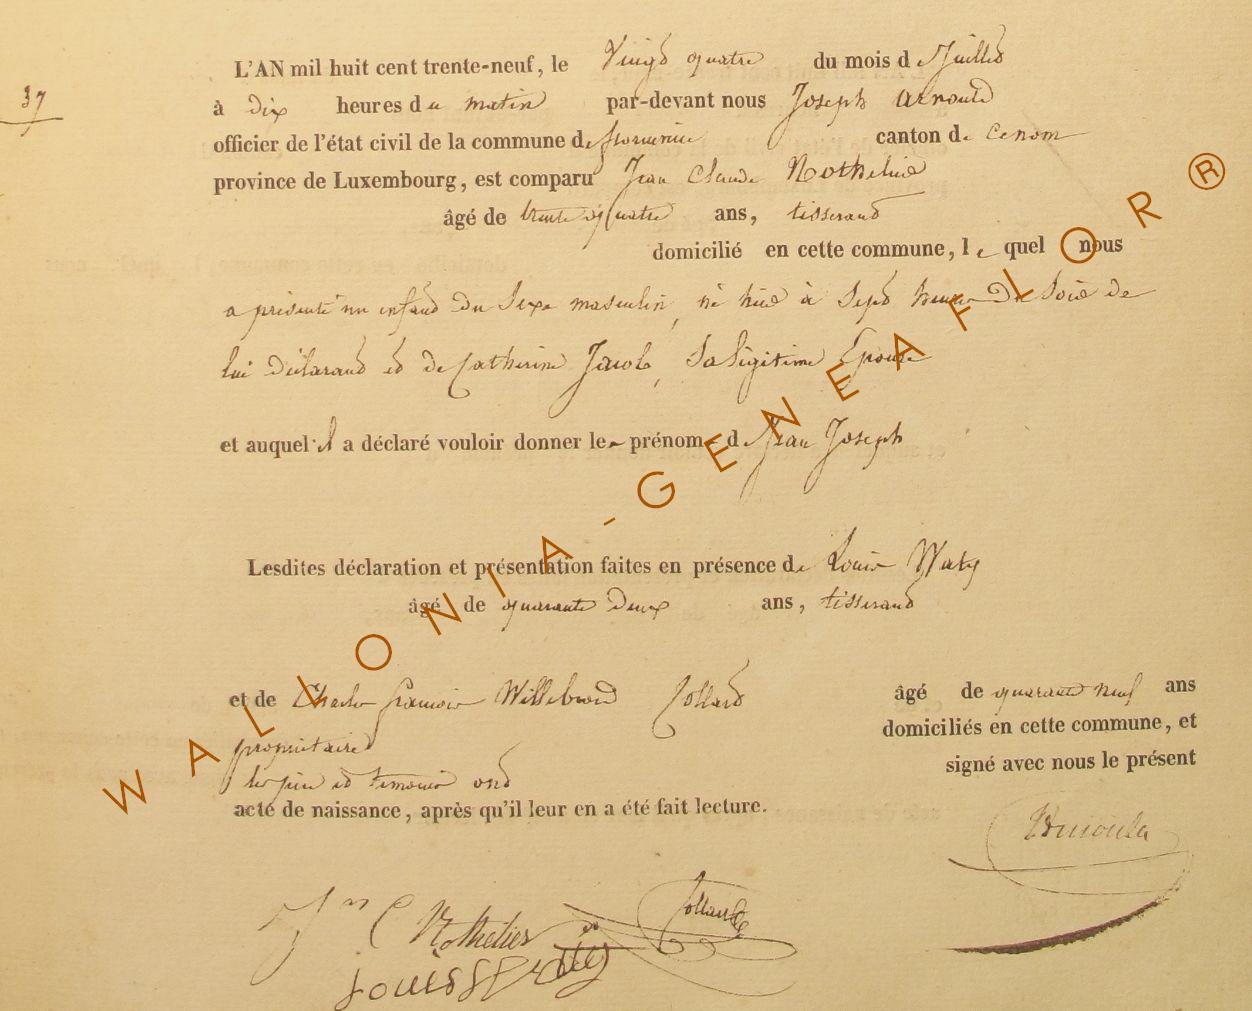 L'AN mil huit cent trente-neuf, le Vingt quatre du mois de Juillet
37
à dix heures du matin par-devant nous Joseph Arnould
officier de l'état civil de la commune de canton de
province de Luxembourg, est comparu Jean Claude Nothelier
âgé de trente quatre ans, tisserand
domicilié en cette commune, le quel nous
a présenté un enfant du Sexe masculin, né hier à Sept heures de Soir de
lui déclarant et de Catherine Jacob, Sa légitime Epouse
et auquel il a déclaré vouloir donner le prénom de Jean Joseph
Lesdites déclaration et présentation faites en présence de Louis Waty
âgé de quarante deux ans, tisserand
et de Charles françois Willebrord Collard âgé de quarante neuf ans
propriétaire domiciliés en cette commune, et
les père et témoins ont signé avec nous le présent
acte de naissance, après qu'il leur en a été fait lecture.
Jn C Nothelier
Collard
Louis
WALLONIA-GENEAFLOR®